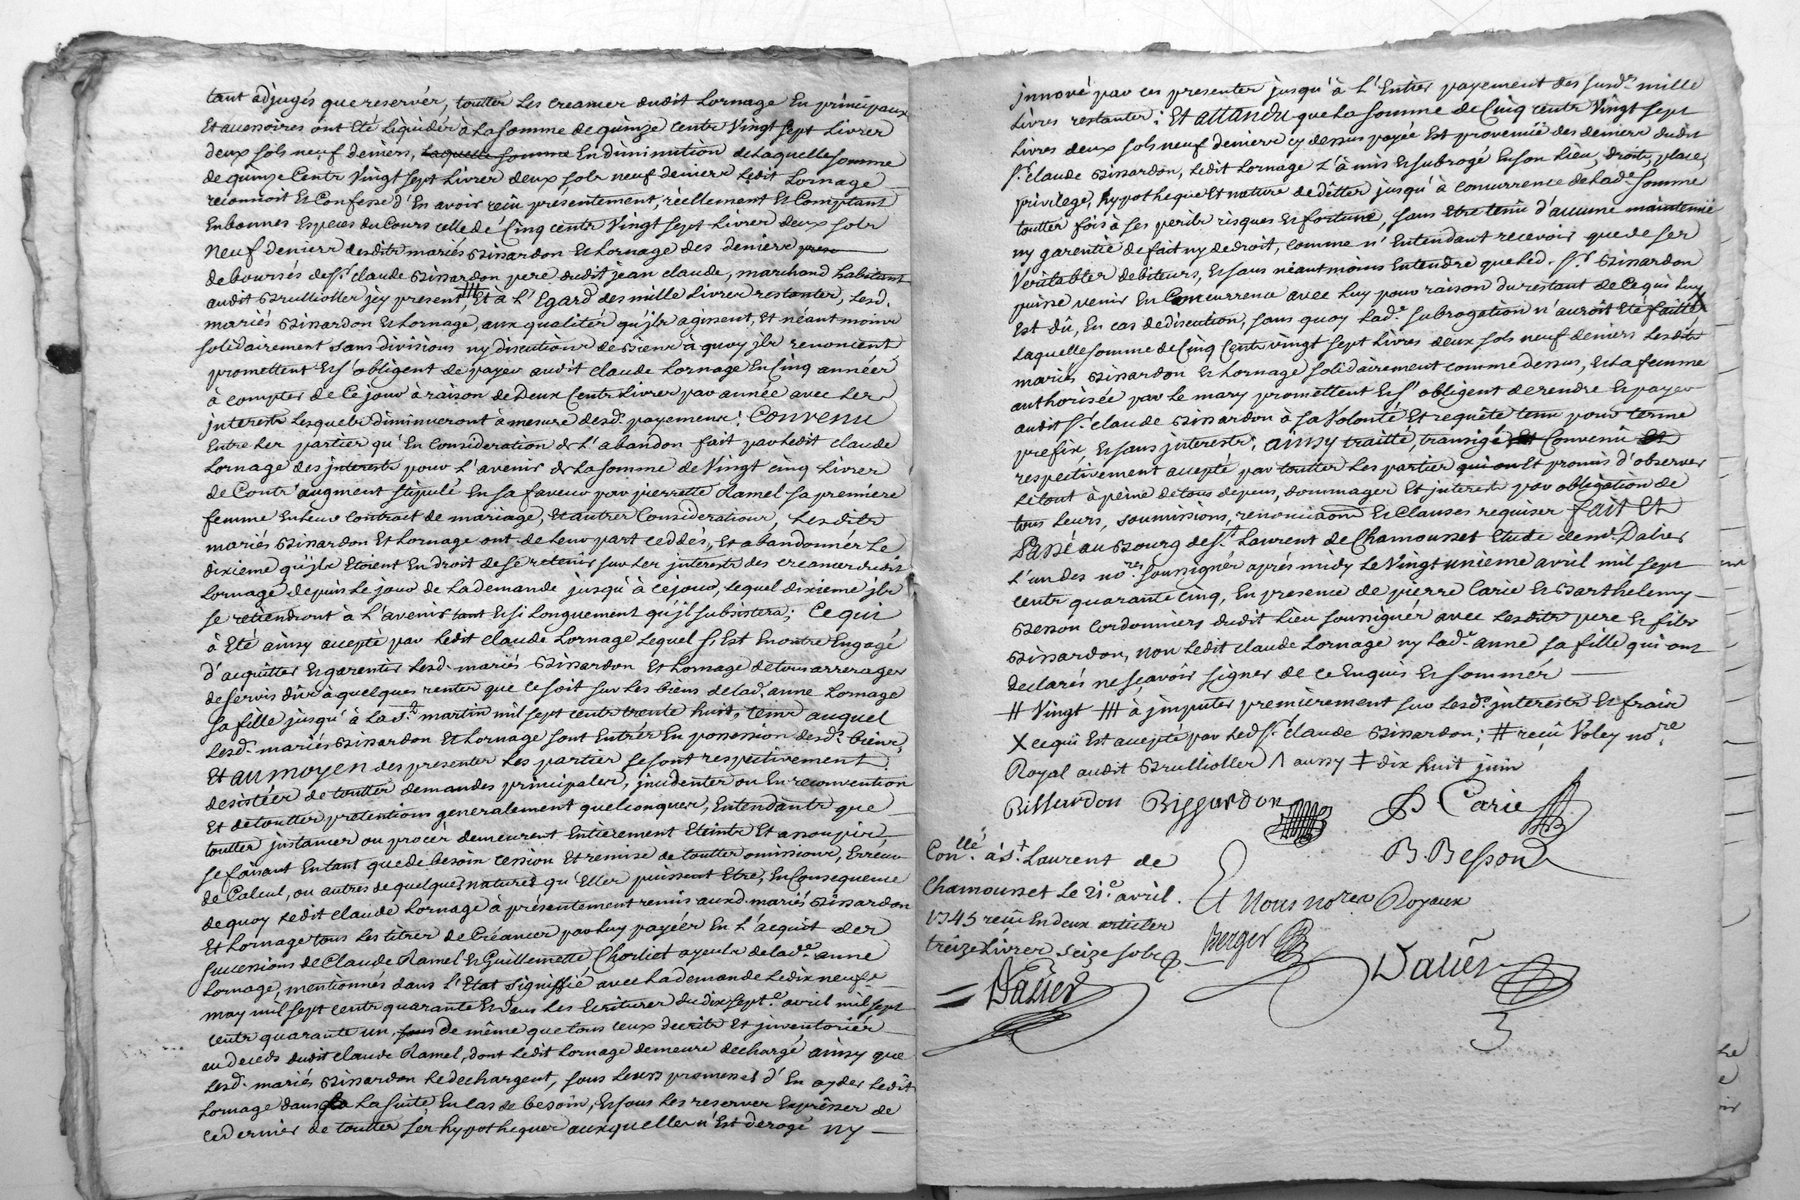 tant adjugés que reservés, touttes les creances dudit Lornage En principaux
Et accessoires ont Eté liquidés à La somme de quinze cents Vingt sept Livres
deux sols neuf deniers, laquelle somme En diminution de Laquelle somme
de quinze Cents Vingt sept Livres deux sols neuf deniers Ledit Lornage
reconnoit Et Confesse d'En avoir reçu présentement, réellement Et Comptant
En bonnes Especes du Cours celle de Cinq cents Vingt sept Livres deux sols
Neuf deniers desdits mariés Bissardon Et Lornage des deniers
deboursés de Sr. Claude Bissardon pere dudit jean claude, marchand habitant
audit Brulliolles jcy present /// Et à L'Egard des mille Livres restantes, Lesd.
mariés Bissardon Et Lornage, aux qualités qu'jls agissent, Et néantmoins
solidairement sans divisions ny discutions de Biens à quoy jls renoncent,
promettent Et s'obligent de payer audit claude Lornage En Cinq années
à compter de Ce jour à raison de Deux Cents Livres par année avec Les
jnterests Lesquels diminueront à mesure desd. payements; Convenu
Entre Les parties qu'En Consideration de L'abandon fait par Ledit claude
Lornage des jnterests pour L'avenir de La somme de Vingt cinq Livres
de Contr'augment stipulé En sa faveur par pierrette Ramel sa premiere
femme En Leur Contrait de mariage, Et autres Considerations, Lesdits
mariés Bissardon Et Lornage ont de Leur part ceddés, Et abandonnés Le
dixieme qu'jls Etoient En droit de se retenir sur Les jnterests des creances dudit
Lornage depuis Le jour de La demande jusqu'à ce jour, Lequel dixieme jls
se retiendront à L'avenir tant Et si Longuement qu'jl subsistera; Ce qui
à Eté ainsy accepté par Ledit Claude Lornage Lequel s'Est En outre Engagé
d'acquitter Et garentir Lesd. mariés Bissardon Et Lornage de tous arrerages
de servis dûs à quelques rentes que ce soit sur Les biens de Lad. anne Lornage
sa fille jusqu'à La St. martin mil sept cents trente huit, tems auquel
Lesd. mariés Bissardon Et Lornage sont Entrés En possession desd. biens,
Et au moyen des presentes Les parties se sont respectivement
desistées de touttes demandes principales, jncidentes ou En reconvention
Et de touttes pretentions generalement quelconques, Entendants que
touttes jnstances ou procès demeurent Entierement Eteints Et assoupis
se faisant En tant que de besoin cession Et remise de touttes omissions, Erreurs
de Calcul, ou autres de quelques natures qu'Elles puissent Etre, En Consequence
de quoy Ledit claude Lornage à présentement remis auxd. mariés Bissardon
Et Lornage tous Les titres de Créances par Luy payées En L'acquit des
successions de Claude Ramel Et Guillemette Chorliet ayeuls de Lade. anne
Lornage, mentionnés dans L'Etat signiffié avec La demande Le dix neuf
may mil sept cents quarante Et dans Les Ecritures du dix sept avril mil sept
cents quarante un, de même que tous ceux decrits Et jnventoriés
au deceds dudit Claude Ramel, dont Ledit Lornage demeure dechargé ainsy que
Lesd. mariés Bissardon Le dechargent, sous Leurs promesses d'En ayder Ledit
Lornage dans La suite En Cas de besoin, Et sous Les reserves Expresses de
ce dernier de touttes ses hypotheques auxquelles n'Est derogé ny
jnnové par ces presentes jusqu'à L'Entier payement des susds. mille
Livres restantes; Et attandu que La somme de Cinq cents Vingt sept
Livres deux sols neuf deniers cy dessus payée Est provenüe des deniers dudit
Sr. claude Bissardon, Ledit Lornage L'à mis Et subrogé En son Lieu, droits, place,
privilege, hypotheque Et nature de dettes jusqu'à concurrence de Lade. somme
touttes fois à ses perils risques Et fortune, sans Etre tenu d'aucune maintenüe
ny garentie de fait ny de droit, comme n'Entendant recevoir que de ses
Véritables debiteurs, Et sans néantmoins Entendre que Led. Sr. Bissardon
puisse venir En Concurrence avec Luy pour raison du restant de Ce qui Luy
Est dû, En cas de discution, sans quoy Lade. subrogation n'auroit Eté faitte X
Laquelle somme de Cinq Cents vingt sept Livres deux sols neuf deniers Lesdits
mariés Bissardon Et Lornage solidairement comme dessus, Et La femme
authorisée par Le mary promettent Et s'obligent de rendre Et payer
audit Sr. claude Bissardon à sa Volonté Et requête pour terme
prefix, Et sans jnterests; ainsy traitté, transigé Et Convenu Et
respectivement accepté par touttes Les parties qui ont promis d'observer
Le tout à peine de tous depens, dommages Et jnterests par obligation de
tous Leurs, soumissions, renonciaons Et Clauses requises fait Et
Passé au Bourg de St. Laurent de Chamousset Etude de me. Dalier
L'un des nores. soussignés après midy Le Vingt unieme avril mil sept
cents quarante cinq, En presence de pierre Carie Et Barthelemy
Besson Cordonniers dudit Lieu soussignés avec Lesdits pere Et fils
Bissardon, non Ledit Claude Lornage ny Lade. anne sa fille qui ont
declarés ne sçavoir signer de ce Enquis Et sommés
# Vingt /// à jmputer premierement sur Lesd. jnterests Et frais
X ce qui Est accepté par Led Sr. Claude Bissardon; # reçu Voley nore.
Royal audit Brulliolles Λ aussy ‡ dix huit juin
Bissardon Bissardon P Carie
B. Besson
Conllé. à St. Laurent de
Chamousset Le 21e. avril.
1745 reçu En deux articles
treize Livres seize sols
Dalier
Et Nous nores Royaux
Berger Dalier
3